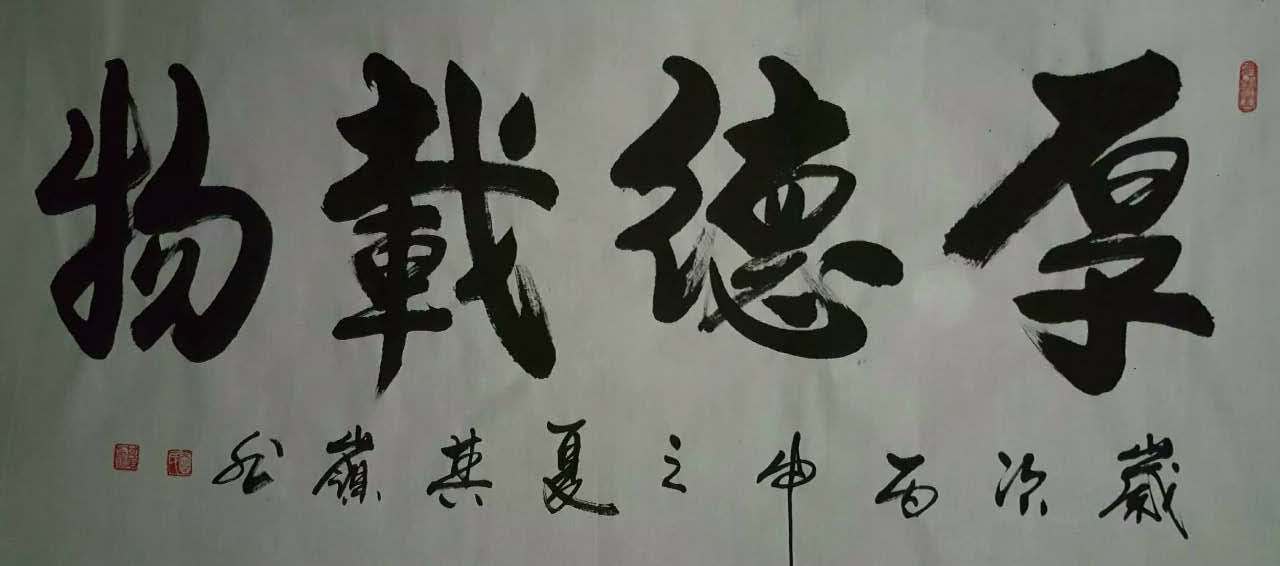 厚德載物
歲次丙申之夏其嶺书